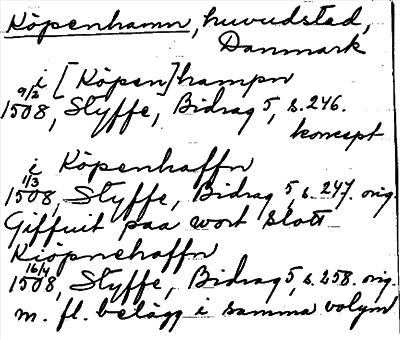 Köpenhamn, huvudstad,
Danmark
i [Köpen]hampn
9/2 1508, Styffe, Bidrag 5, s. 246.
koncept
i Köpenhaffn
1/3 1508, Styffe, Bidrag 5, s. 247. orig.
Giffuit paa wort Slott
Kiöpnehaffn
16/4 1508, Styffe, Bidrag 5, s. 258. orig.
m. fl. belägg i samma volym